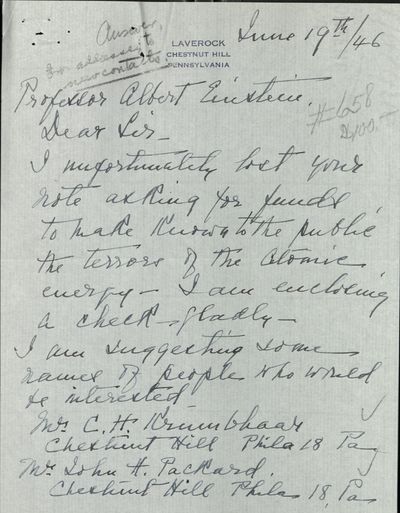 Answer
for addresses to
new contacts.
LAVEROCK
CHESTNUT HILL
PENNSYLVANIA
June 19th/46
Professor Albert Einstein.
#1658
$100.—
Dear Sir—
I unfortunately lost your
note asking for funds
to make known to the public
the terrors of the atomic
energy — I am enclosing
a check — gladly —
I am suggesting some
names of people who would
be interested
Mrs. C. H. Krumbhaar
Chestnut Hill Phila 18 Pa
Mr. John H. Packard.
Chestnut Hill Phila 18, Pa